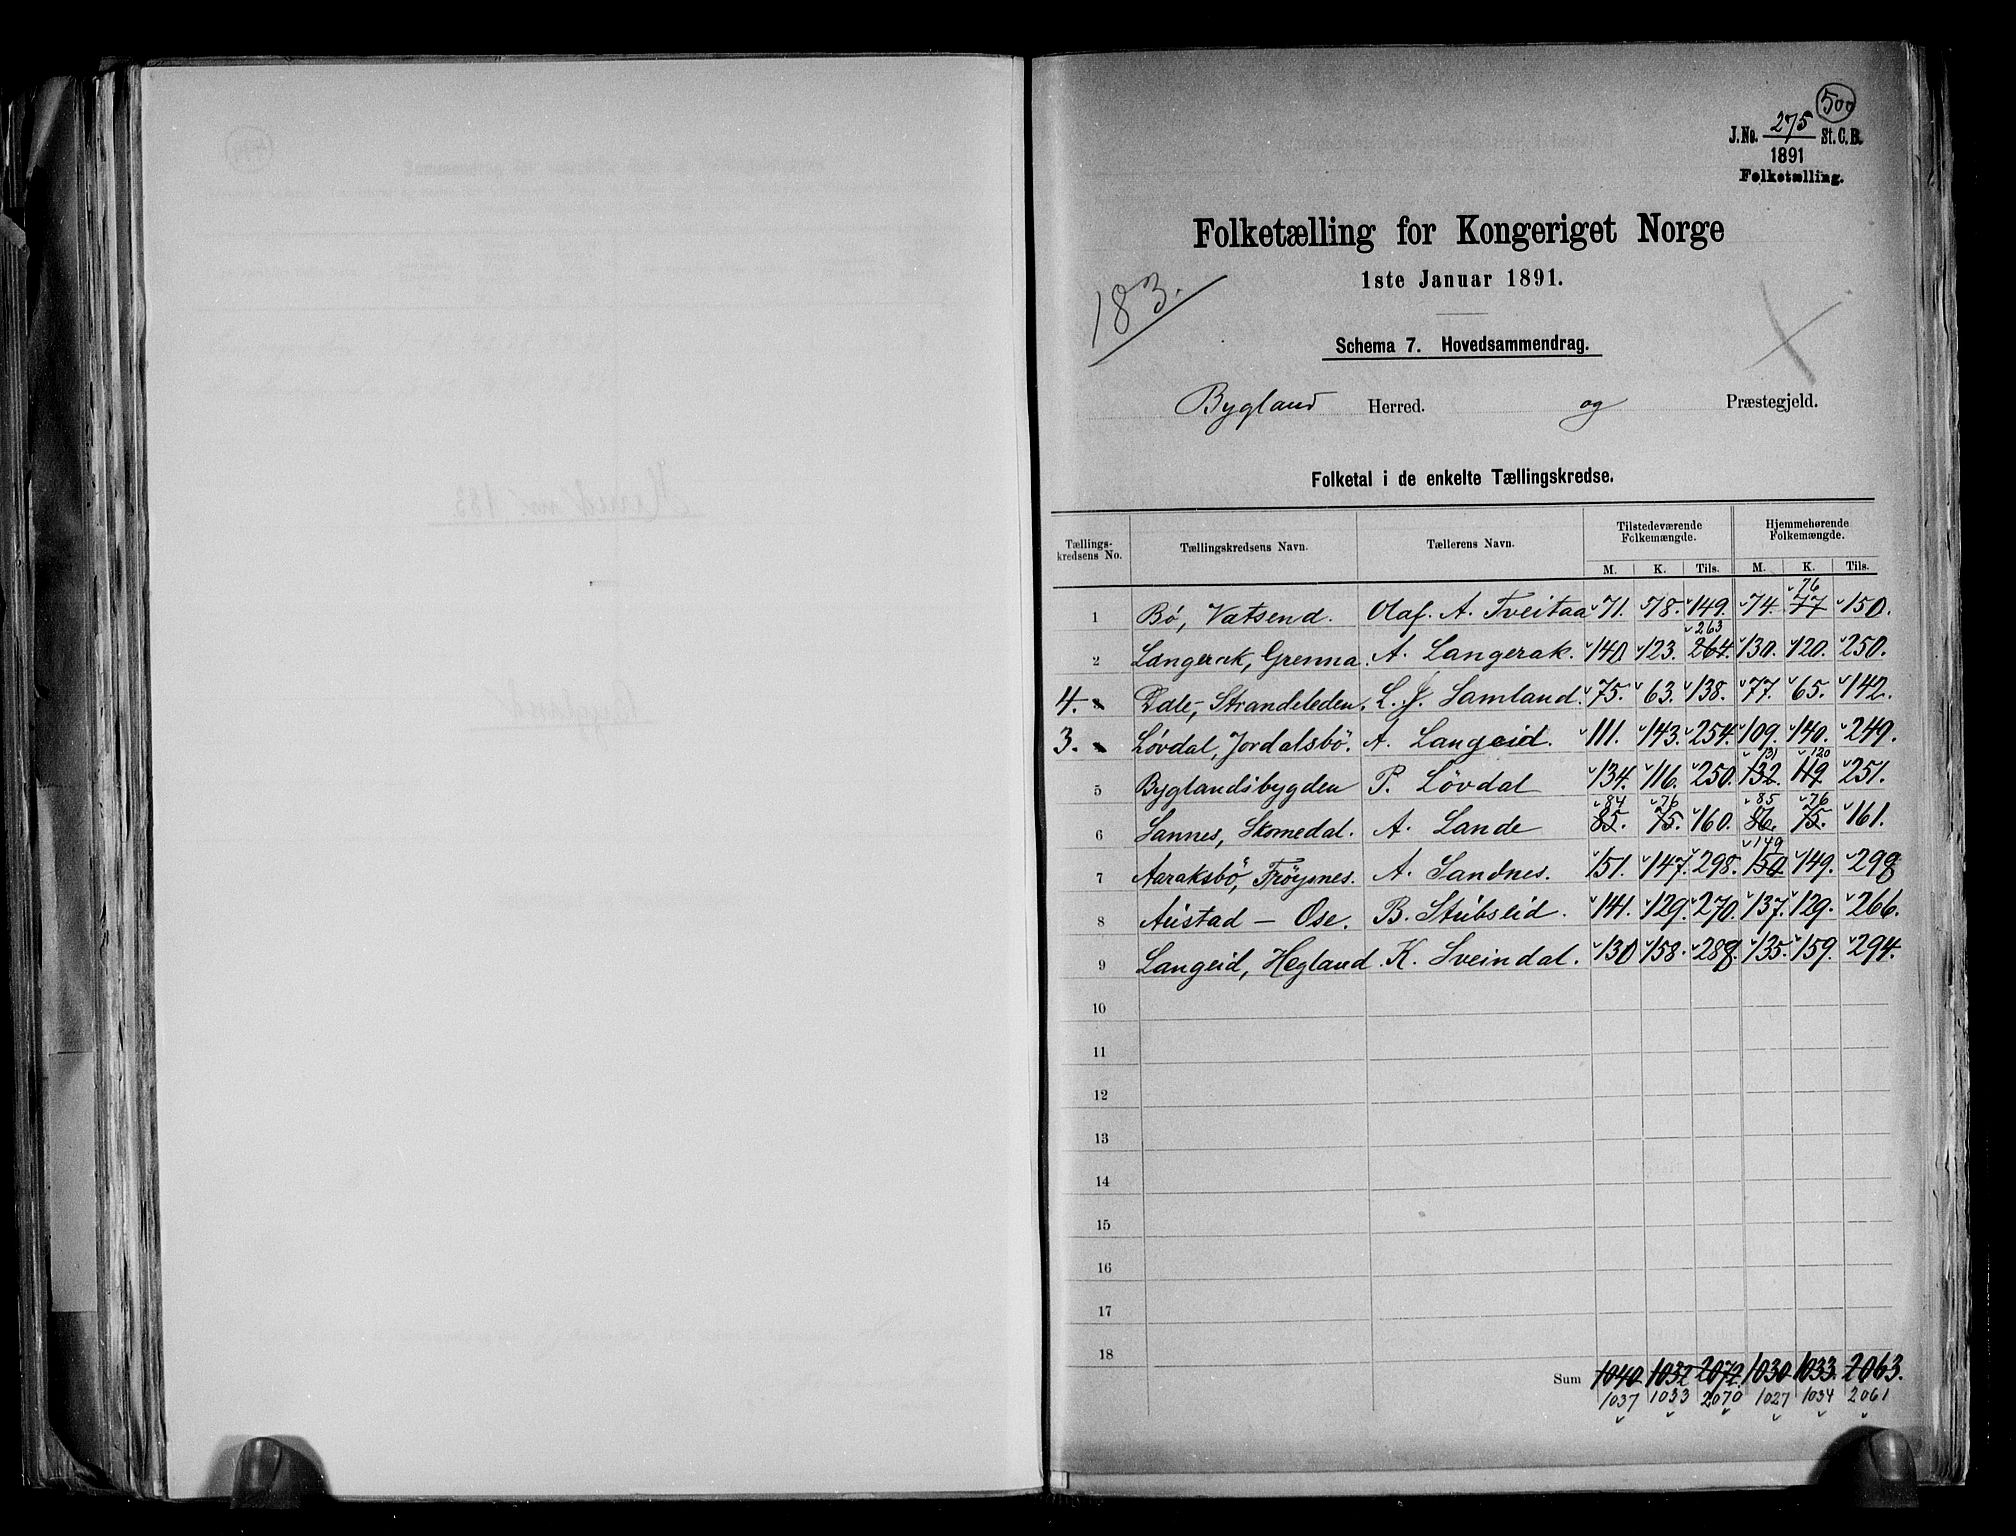 500
J.No. 275 St.C.B.
1891
Folketælling.
Folketælling for Kongeriget Norge
1ste Januar 1891.
183.
Schema 7. Hovedsammendrag.
Bygland Herred. og Præstegjeld.
Folketal i de enkelte Tællingskredse.
Tællings-kredsens No. Tællingskredsens Navn. Tællerens Navn. Tilstedeværende Folkemængde. Hjemmehørende Folkemængde.
M. K. Tils. M. K. Tils.
76
1 Bø, Vatsend. Olaf. A. Tveitaa 71. 78. 149. 74. 77 150.
263
2 Langerak, Grenna. A. Langerak. 140 123. 264. 130. 120. 250.
4. 3 Dale, Strandeleden. L. J. Samland. 75. 63. 138. 77. 65. 142.
3. 4 Løvdal, Jordalsbö. A. Langeid. 111. 143. 254. 109. 140. 249.
131 120
5 Byglandsbygden P. Løvdal 134. 116. 250. 132. 119. 251.
84 76 85 76
6 Sannes, Skomedal. A. Lande 85. 75. 160. 86. 75. 161.
149
7 Aaraksbö, Frøysnes. A. Sandnes. 151. 147. 298. 150 149. 298
8 Austad – Ose. B. Stubseid. 141. 129. 270. 137. 129. 266.
9 Langeid, Hegland. K. Sveindal. 130 158. 288. 135. 159. 294.
10
11
12
13
14
15
16
17
18
Sum 1040 1032 2072. 1030 1033. 2063.
1037 1033 2070 1027 1034 2061